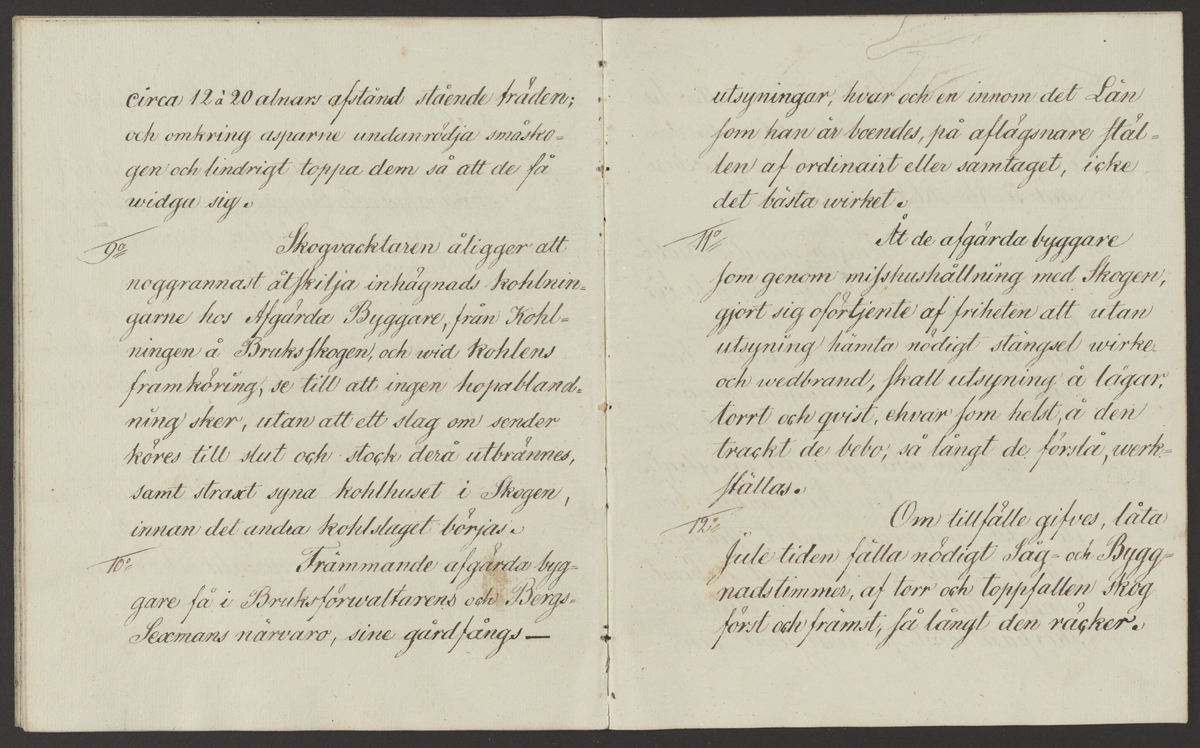 circa 12 à 20 alnars afstånd stående träden;
och omkring asparne undanrödja småsko=
gen och lindrigt toppa dem så att de få
widga sig.
9o Skogvacktaren åligger att
noggrannast åtskilja inhägnads kohlnin=
garne hos Afgärda Byggare, från Kohl=
ningen å Bruksskogen, och wid kohlens
framköring, se till att ingen hopabland=
ning sker, utan att ett slag om sender
köres till slut och stock derå utbrännes,
samt straxt syna kohlhuset i Skogen,
innan det andra kohlslaget börjas.
10o Främmande afgärda byg=
gare få i Bruksförwaltarens och Bergs=
Sexmans närvaro, sine gårdfångs —
utsyningar, hvar och en innom det Län
som han är boendes, på aflägsnare stäl=
len af ordinairt eller samtaget, icke
det bästa wirket.
11o Åt de afgärda byggare
som genom misshushållning med Skogen,
gjort sig oförtjente af friheten att utan
utsyning hämta nödigt stängsel wirke
och wedbrand, skall utsyning å lågar,
torrt och qvist, ehvar som helst, å den
trackt de bebo, så långt de förslå, werk=
ställas.
12o Om tillfälle gifves, låta
Jule tiden fälla nödigt Såg- och Bygg=
nadstimmer, af torr och toppfallen skog
först och främst, så långt den räcker.